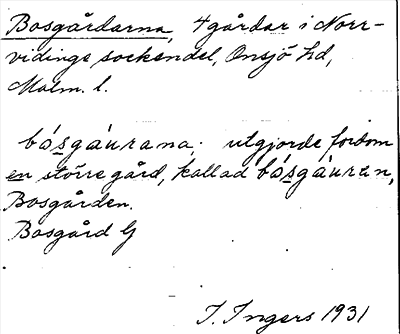 Bosgårdarna, 4 gårdar i Norr-
vidinge sockendel, Onsjö hd,
Malm. l.
bósgáurana; utgjorde fordom
en större gård, kallad bósgáurən,
Bosgården.
Bosgård G
I. Ingers 1931